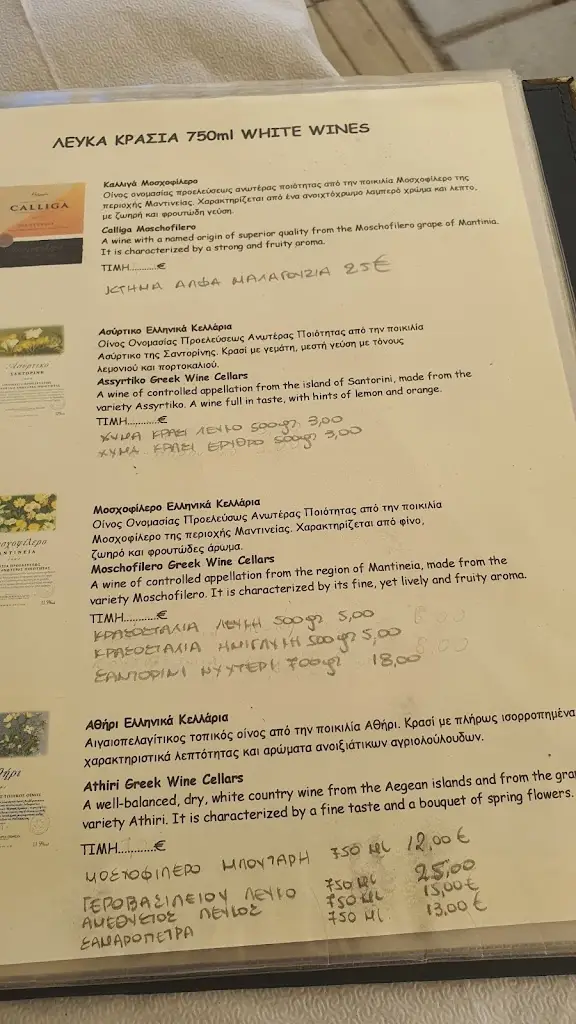 ΛΕΥΚΑ ΚΡΑΣΙΑ 750ml WHITE WINES
CALLIGA
Καλλιγά Μοσχοφίλερο
Οίνος ονομασίας προελεύσεως ανωτέρας ποιότητας από την ποικιλία Μοσχοφίλερο της
περιοχής Μαντινείας. Χαρακτηρίζεται από ένα ανοιχτόχρωμο λαμπερό χρώμα και λεπτο,
με ζωηρή και φρουτώδη γεύση.
Calliga Moschofilero
A wine with a named origin of superior quality from the Moschofilero grape of Mantinia.
It is characterized by a strong and fruity aroma.
ΤΙΜΗ...........€
ΚΤΗΜΑ ΑΛΦΑ ΜΑΛΑΓΟΥΖΙΑ 25€
Ασύρτικο
ΣΑΝΤΟΡΙΝΗ
Ασύρτικο Ελληνικά Κελλάρια
Οίνος Ονομασίας Προελεύσεως Ανωτέρας Ποιότητας από την ποικιλία
Ασύρτικο της Σαντορίνης. Κρασί με γεμάτη, μεστή γεύση με τόνους
λεμονιού και πορτοκαλιού.
Assyrtiko Greek Wine Cellars
A wine of controlled appellation from the island of Santorini, made from the
variety Assyrtiko. A wine full in taste, with hints of lemon and orange.
ΤΙΜΗ...........€
ΧΥΜΑ ΚΡΑΣΙ ΛΕΥΚΟ 500gr 3,00
ΧΥΜΑ ΚΡΑΣΙ ΕΡΥΘΡΟ 500gr 3,00
Μοσχοφίλερο Ελληνικά Κελλάρια
Οίνος Ονομασίας Προελεύσως Ανωτέρας Ποιότητας από την ποικιλία
Μοσχοφίλερο της περιοχής Μαντινείας. Χαρακτηρίζεται από φίνο,
ζωηρό και φρουτώδες άρωμα.
Moschofilero Greek Wine Cellars
A wine of controlled appellation from the region of Mantineia, made from the
variety Moschofilero. It is characterized by its fine, yet lively and fruity aroma.
ΤΙΜΗ...........€
ΚΡΑΣΟΣΤΑΛΙΑ ΛΕΥΚΗ 500gr 5,00
ΚΡΑΣΟΣΤΑΛΙΑ ΗΜΙΓΛΥΚΗ 500gr 5,00
ΣΑΝΤΟΡΙΝΙ ΝΥΧΤΕΡΙ 700gr 18,00
Αθήρι Ελληνικά Κελλάρια
Αιγαιοπελαγίτικος τοπικός οίνος από την ποικιλία Αθήρι. Κρασί με πλήρως ισορροπημένα
χαρακτηριστικά λεπτότητας και αρώματα ανοιξιάτικων αγριολούλουδων.
Athiri Greek Wine Cellars
A well-balanced, dry, white country wine from the Aegean islands and from the gra
variety Athiri. It is characterized by a fine taste and a bouquet of spring flowers.
ΤΙΜΗ...........€
ΜΟΣΧΟΦΙΛΕΡΟ ΜΠΟΥΤΑΡΗ 750 ml 12,00 €
ΓΕΡΟΒΑΣΙΛΕΙΟΥ ΛΕΥΚΟ 750 ml 25,00
ΑΜΕΘΥΣΤΟΣ ΛΕΥΚΟΣ 750 ml 15,00€
ΞΑΜΑΡΟΠΕΤΡΑ 750 ml 13,00€